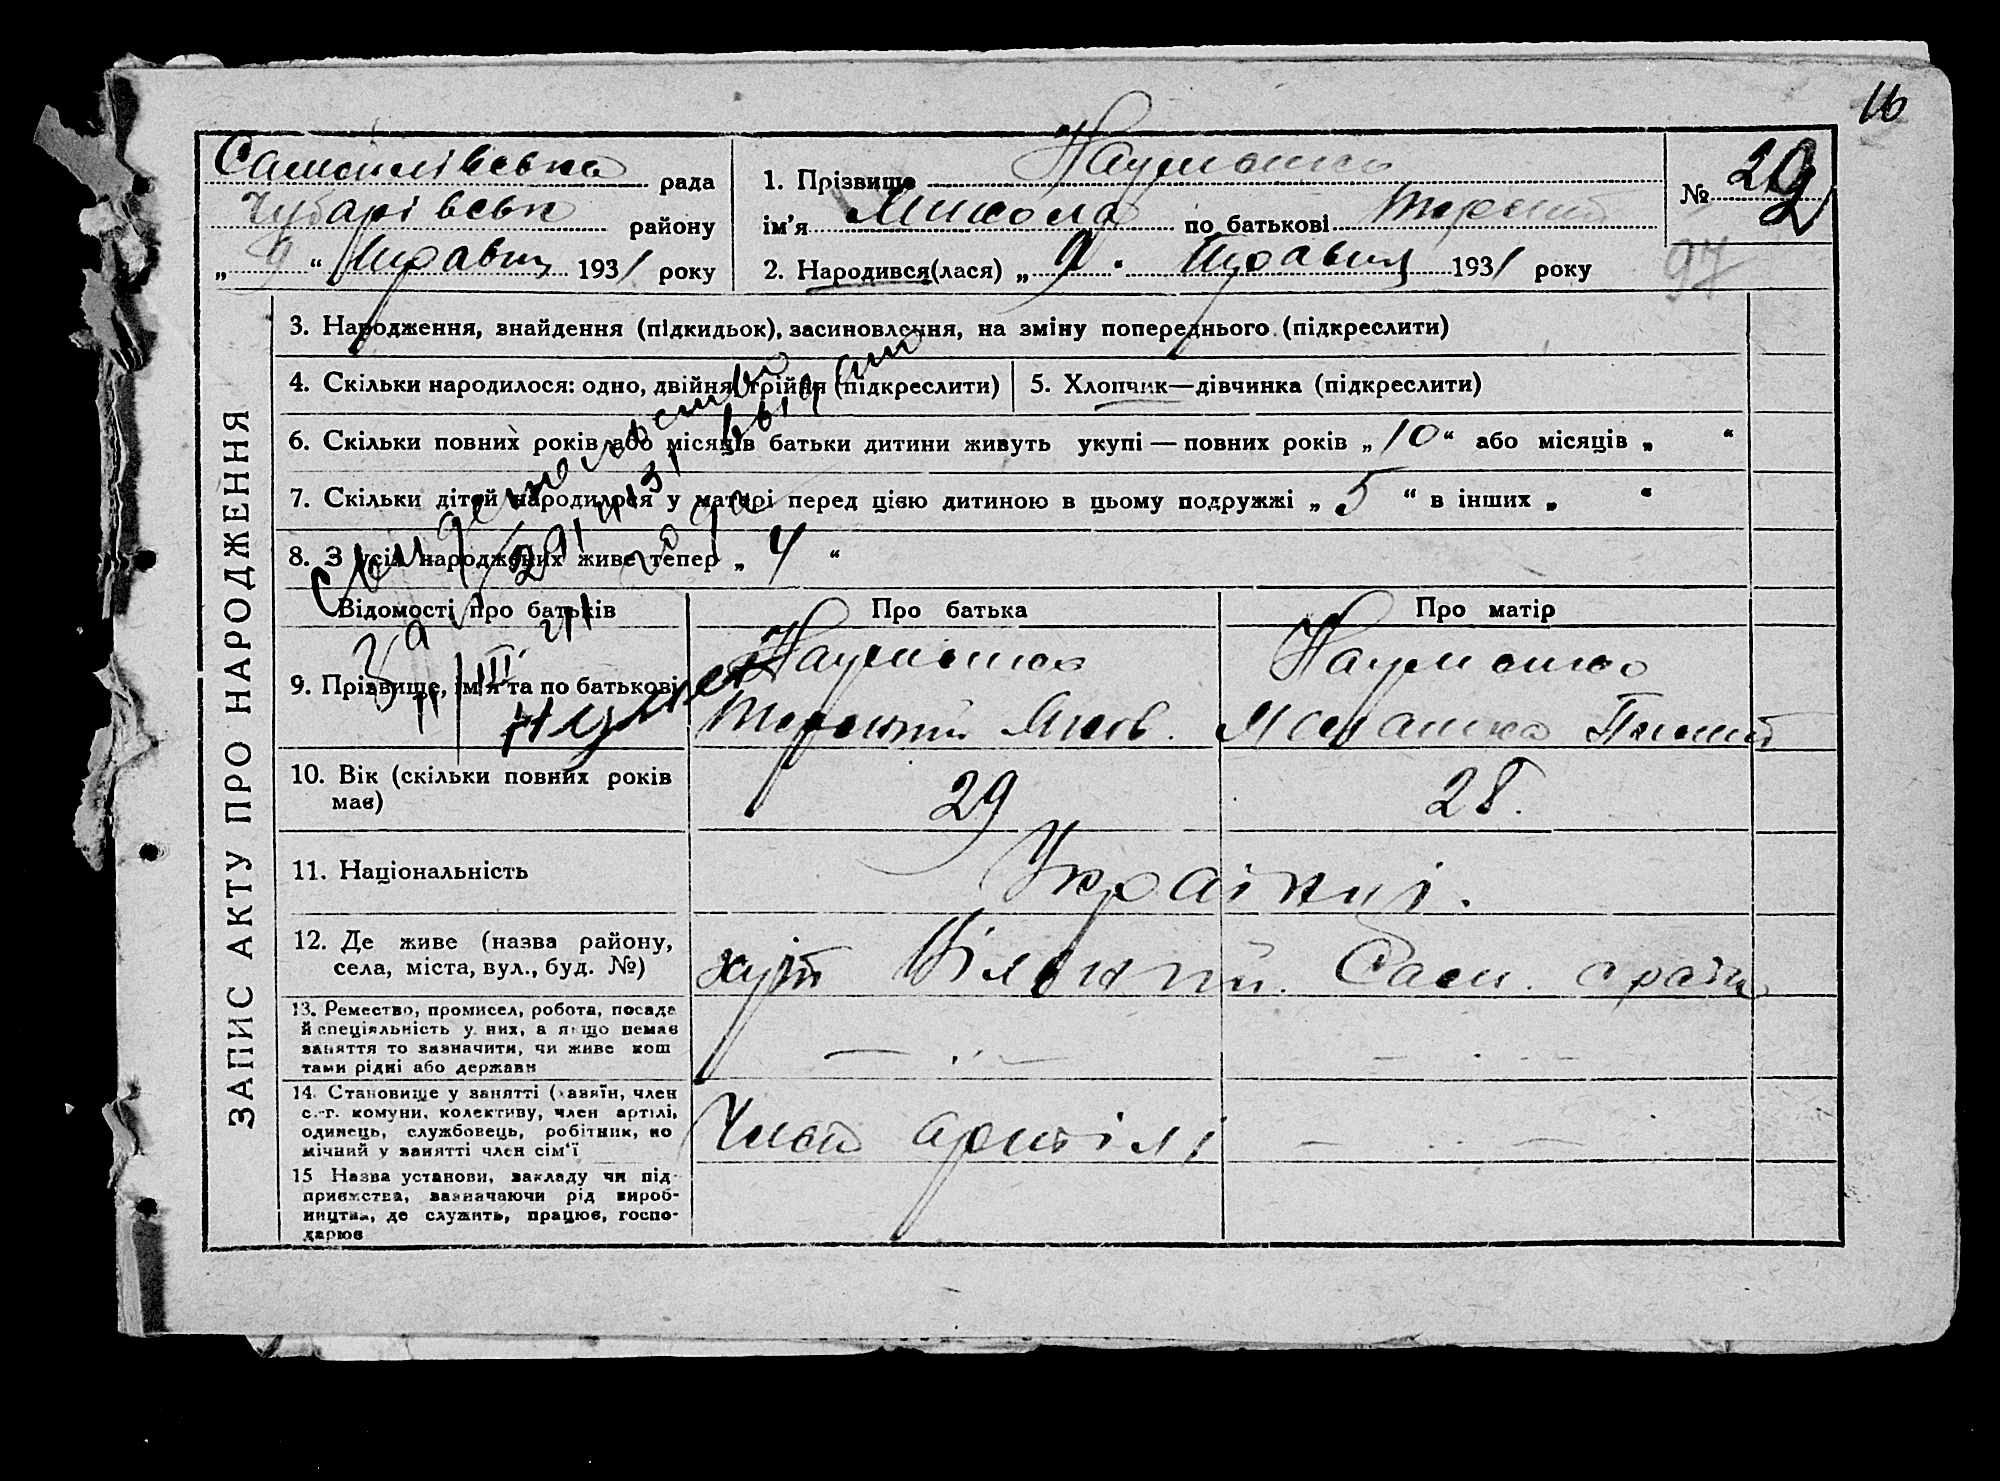 16
Самійлівська рада
Чубарівськ району
„ 9 “ Травня 1931 року
1. Прізвище Науменко
ім'я Микола по батькові Терент
2. Народився(лася) „ 9 “ Травня 1931 року
№ 29
97
ЗАПИС АКТУ ПРО НАРОДЖЕННЯ
3. Народження, знайдення (підкидьок), засиновлення, на зміну попереднього (підкреслити)
4. Скільки народилося: одно, двійня, трійня (підкреслити)
5. Хлопчик—дівчинка (підкреслити)
6. Скільки повних років або місяців батьки дитини живуть укупі — повних років „ 10 “ або місяців „ “
7. Скільки дітей народилося у матері перед цією дитиною в цьому подружжі „ 5 “ в інших „ “
8. З усіх народжених живе тепер „ 4 “
Відомості про батьків
Про батька
Про матір
9. Прізвище, ім'я та по батькові
Науменко
Терентій Яков.
Науменко
Меланка
10. Вік (скільки повних років
має)
29
28.
11. Національність
Українці.
12. Де живе (назва району,
села, міста, вул., буд. №)
хут Вільний. Сам. с ради
13. Ремество, промисел, робота, посада
й спеціяльність у них, а якщо немає
заняття то зазначити, чи живе кош
тами рідні або держави
14. Становище у занятті (хазяїн, член
с.-г. комуни, колективу, член артілі,
одинець, службовець, робітник, по
мічний у занятті член сім'ї
Член артілі
15 Назва установи, закладу чи під-
приємства, зазначаючи рід вироб-
ництва, де служить, працює, госпо-
дарює
Свидетельство
выдано
за